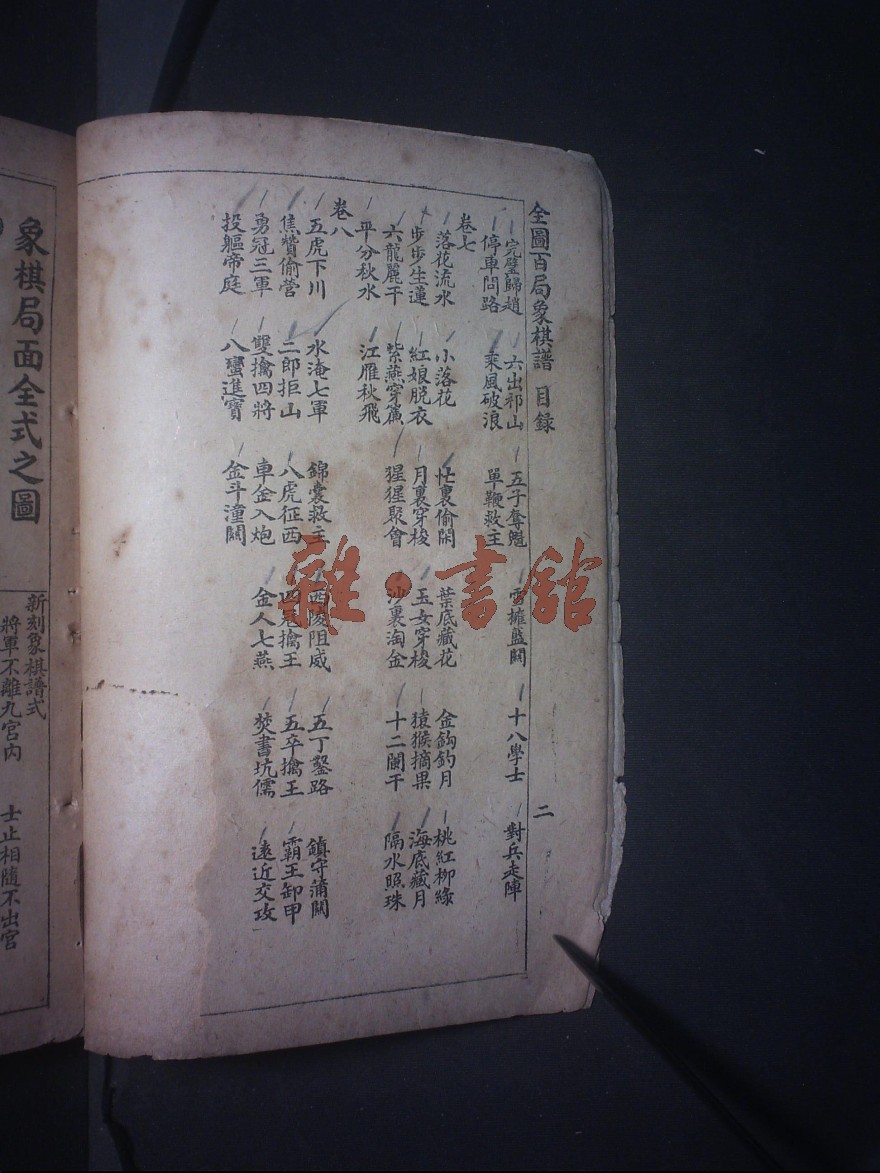 全圖百局象棋譜 目錄 二
完璧歸趙 六出祁山 五子奪魁 雪擁藍關 十八學士 對兵走陣
停車問路 乘風破浪 單鞭救主
卷七
落花流水 小落花 忙裏偷閑 葉底藏花 金鈎釣月 桃紅柳綠
步步生蓮 紅娘脱衣 月裏穿梭 玉女穿梭 猿猴摘果 海底藏月
六龍麗干 紫燕穿簾 猩猩聚會 沙裏淘金 十二闌干 隔水照珠
平分秋水 江雁秋飛
卷八
五虎下川 水淹七軍 錦囊救主 西陵阻威 五丁鑿路 鎮守蒲關
焦贊偷營 二郎拒山 八虎征西 四冠擒王 五卒擒王 霸王卸甲
勇冠三軍 雙擒四將 車金入炮 金人七燕 焚書坑儒 遠近交攻
投軀帝庭 八蠻進寶 金斗潼關
象棋局面全式之圖
新刻象棋譜式
將軍不離九宮內 士止相隨不出宮
雜·書館